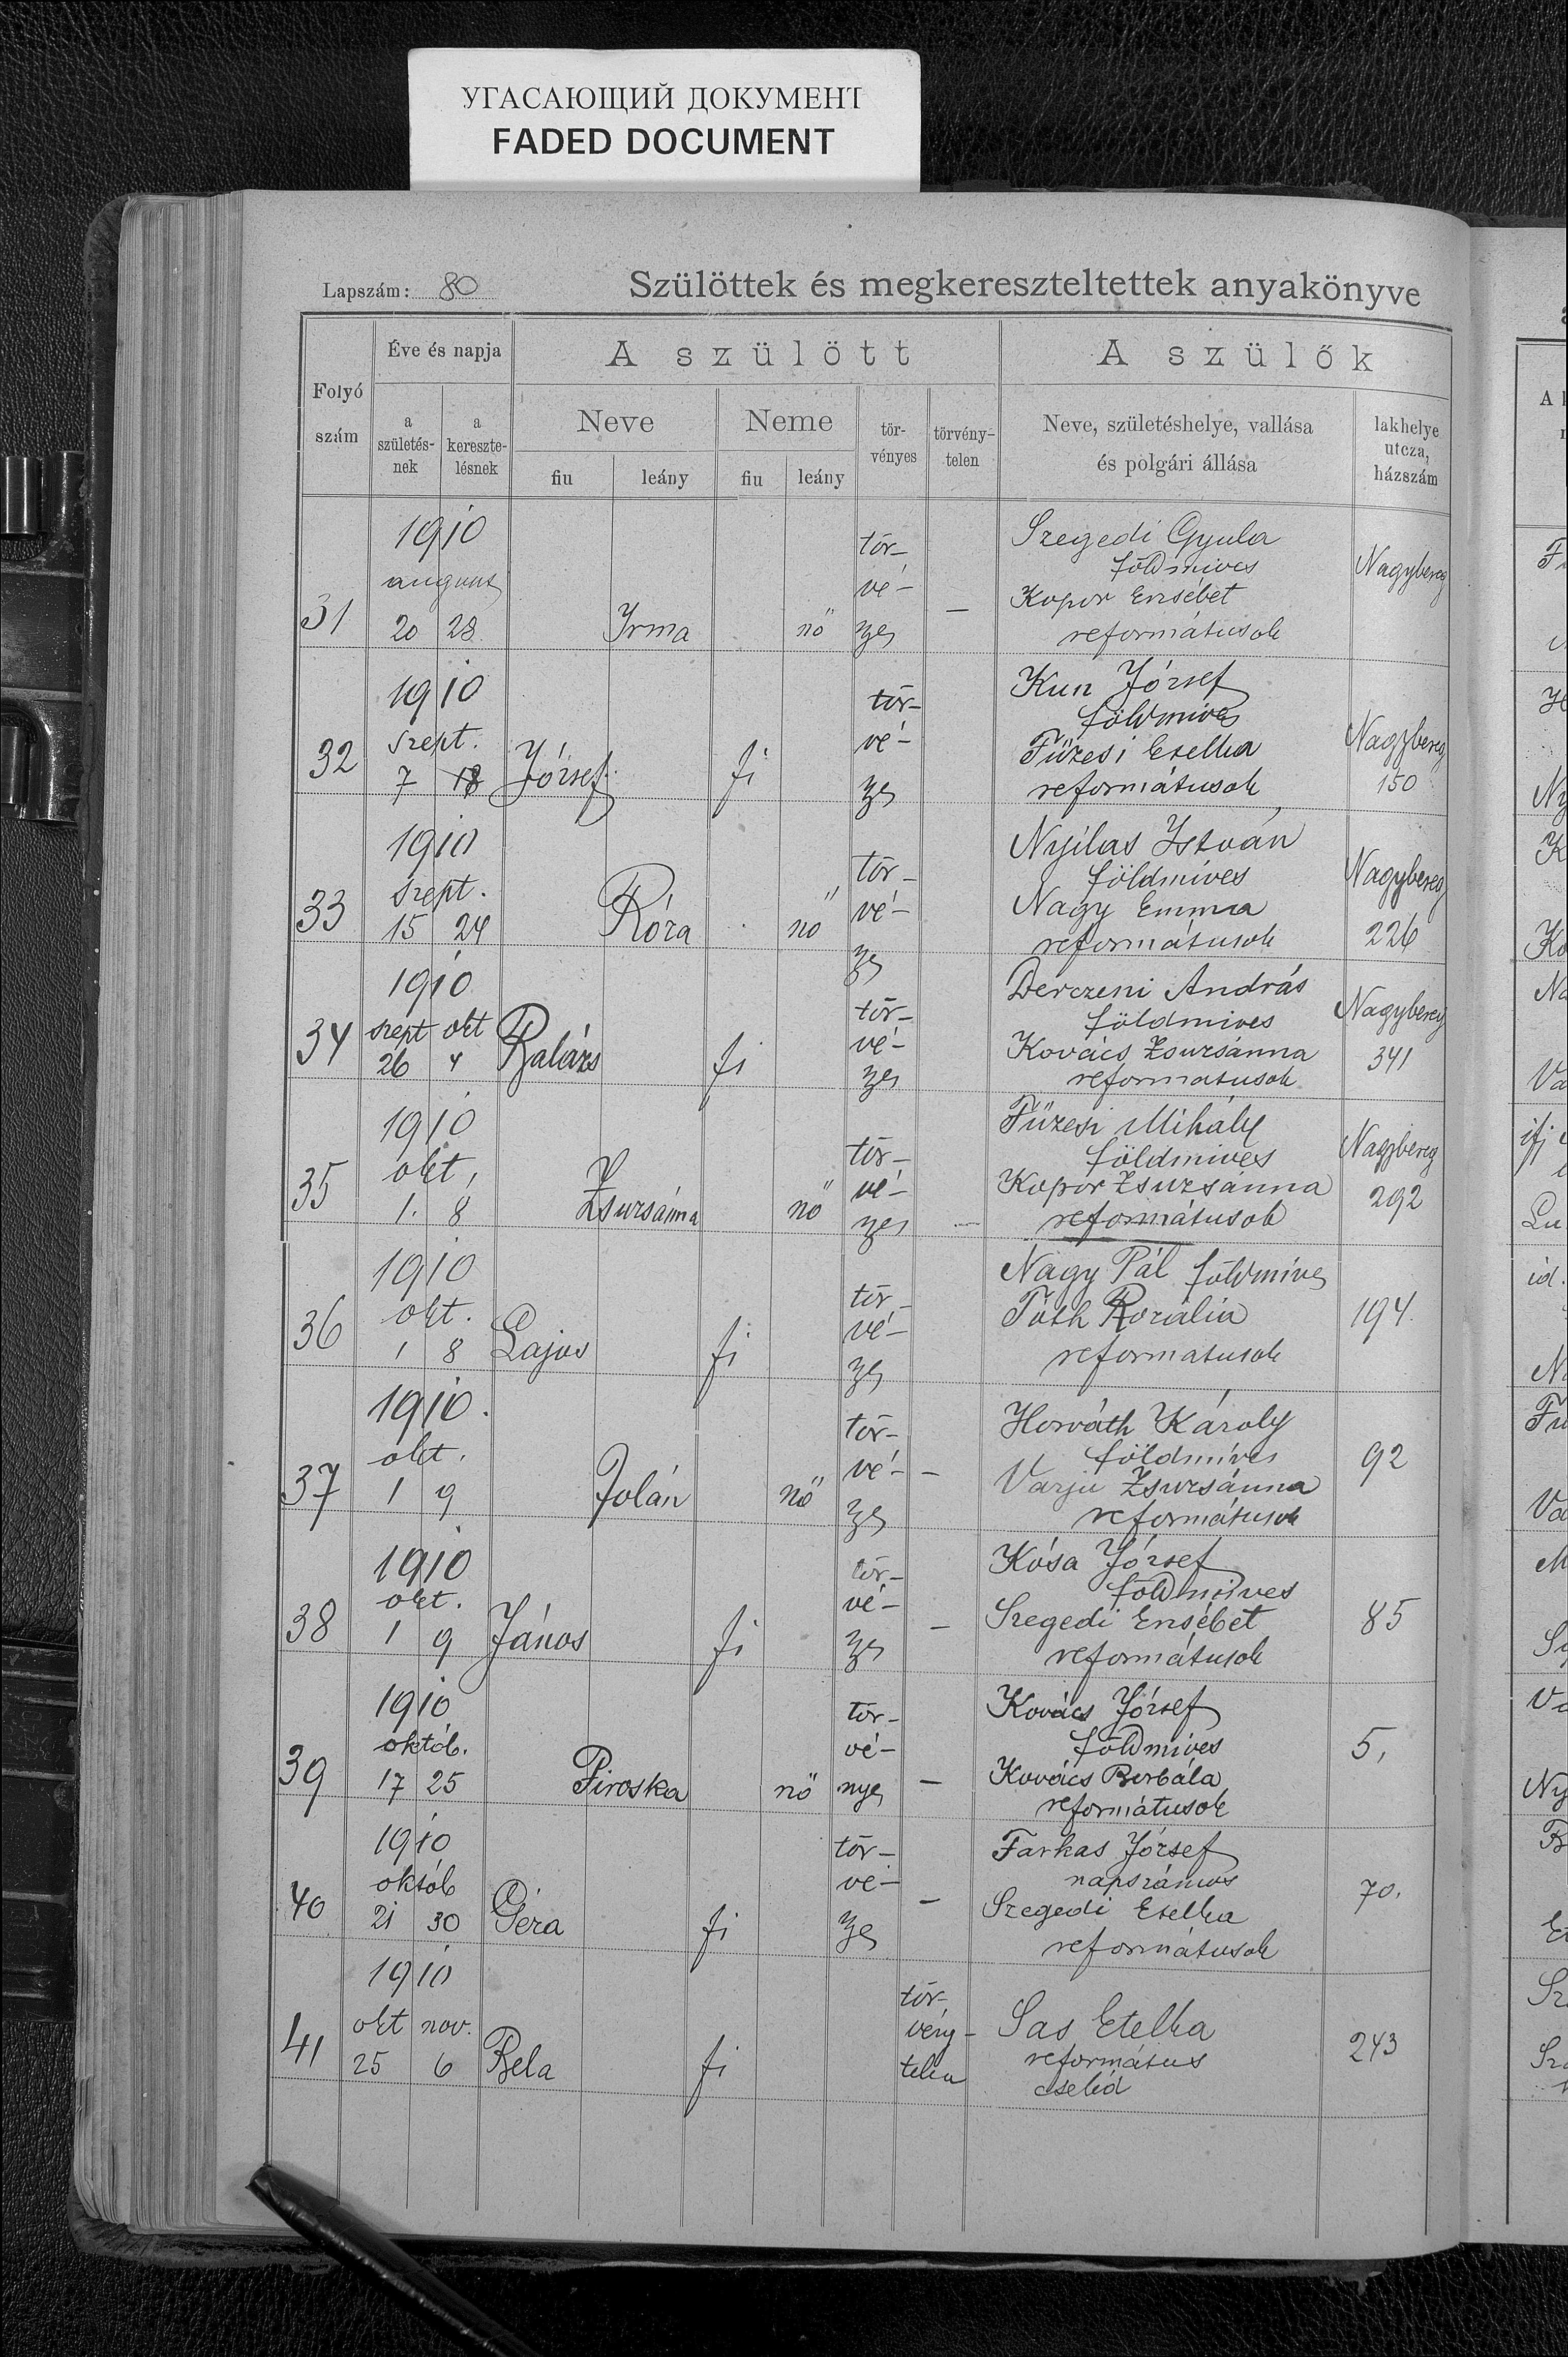 УГАСАЮЩИЙ ДОКУМЕНТ
FADED DOCUMENT
Lapszám: 80
Szülöttek és megkereszteltettek anyakönyve
Folyó szám
Éve és napja
a születés-nek
a kereszte-lésnek
A szülött
Neve
fiu
leány
Neme
fiu
leány
tör-vényes
törvény-telen
A szülők
Neve, születéshelye, vallása
és polgári állása
lakhelye
utcza,
házszám
1910
august
31 20 28 Irma nő tör-vé-yes —
Szegedi Gyula
földmives
Kopor Erzsébet
reformátusok
Nagybereg
1910
szept.
32 7 18 József fi tör-vé-yes
Kun József
földmives
Füzesi Etelka
reformátusok
Nagybereg
150
1910
szept.
33 15 24 Róza nő tör-vé-yes
Nyilas István
földmíves
Nagy Emma
reformátusok
Nagybereg
226
1910
szept okt
34 26 4 Balázs fi tör-vé-yes
Derczeni András
földmives
Kovács Zsuzsánna
reformatusok
Nagybereg
341
1910
okt.
35 1. 8 Zsuzsánna nő tör-vé-yes —
Füzesi Mihály
földmives
Kopor Zsuzsánna
reformátusok
Nagybereg
292
1910
okt.
36 1 8 Lajos fi tör-vé-yes
Nagy Pál földmíves
Tóth Rozália
reformatusok
194.
1910.
okt.
37 1 9 Jolán nő tör-vé-yes —
Horváth Károly
földmíves
Varju Zsuzsánna
reformátusok
92
1910
okt.
38 1 9 János fi tör-vé-yes —
Kósa József
földmives
Szegedi Erzsébet
reformátusok
85
1910
októb.
39 17 25 Piroska nő tör-vé-nyes —
Kovács József
földmíves
Kovács Borbála
reformátusok
5,
1910
októb
40 21 30 Géza fi tör-vé-yes —
Farkas József
napszámos
Szegedi Etelka
reformátusok
70.
1910
okt nov.
41 25 6 Bela fi tör-vény-telen
Sas Etelka
református
cseléd
243